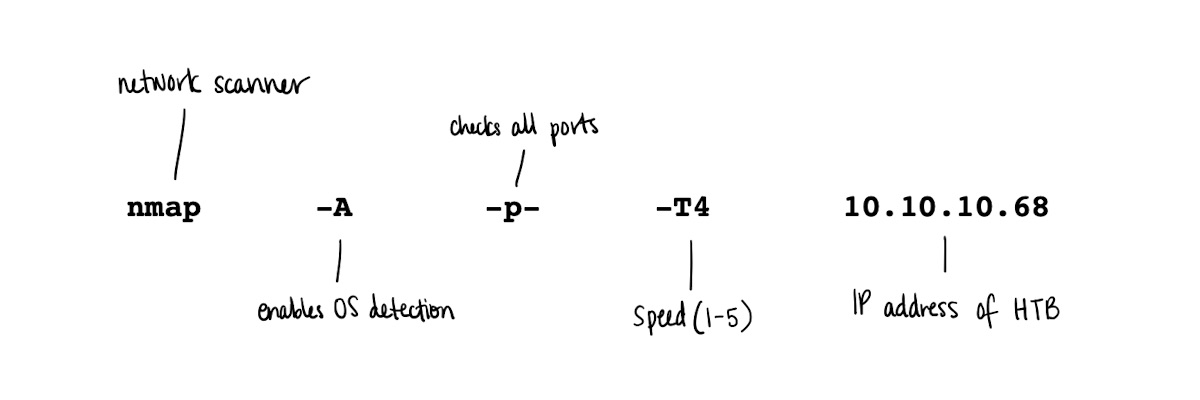 network scanner
checks all ports
nmap -A -p- -T4 10.10.10.68
enables OS detection
Speed (1-5)
IP address of HTB